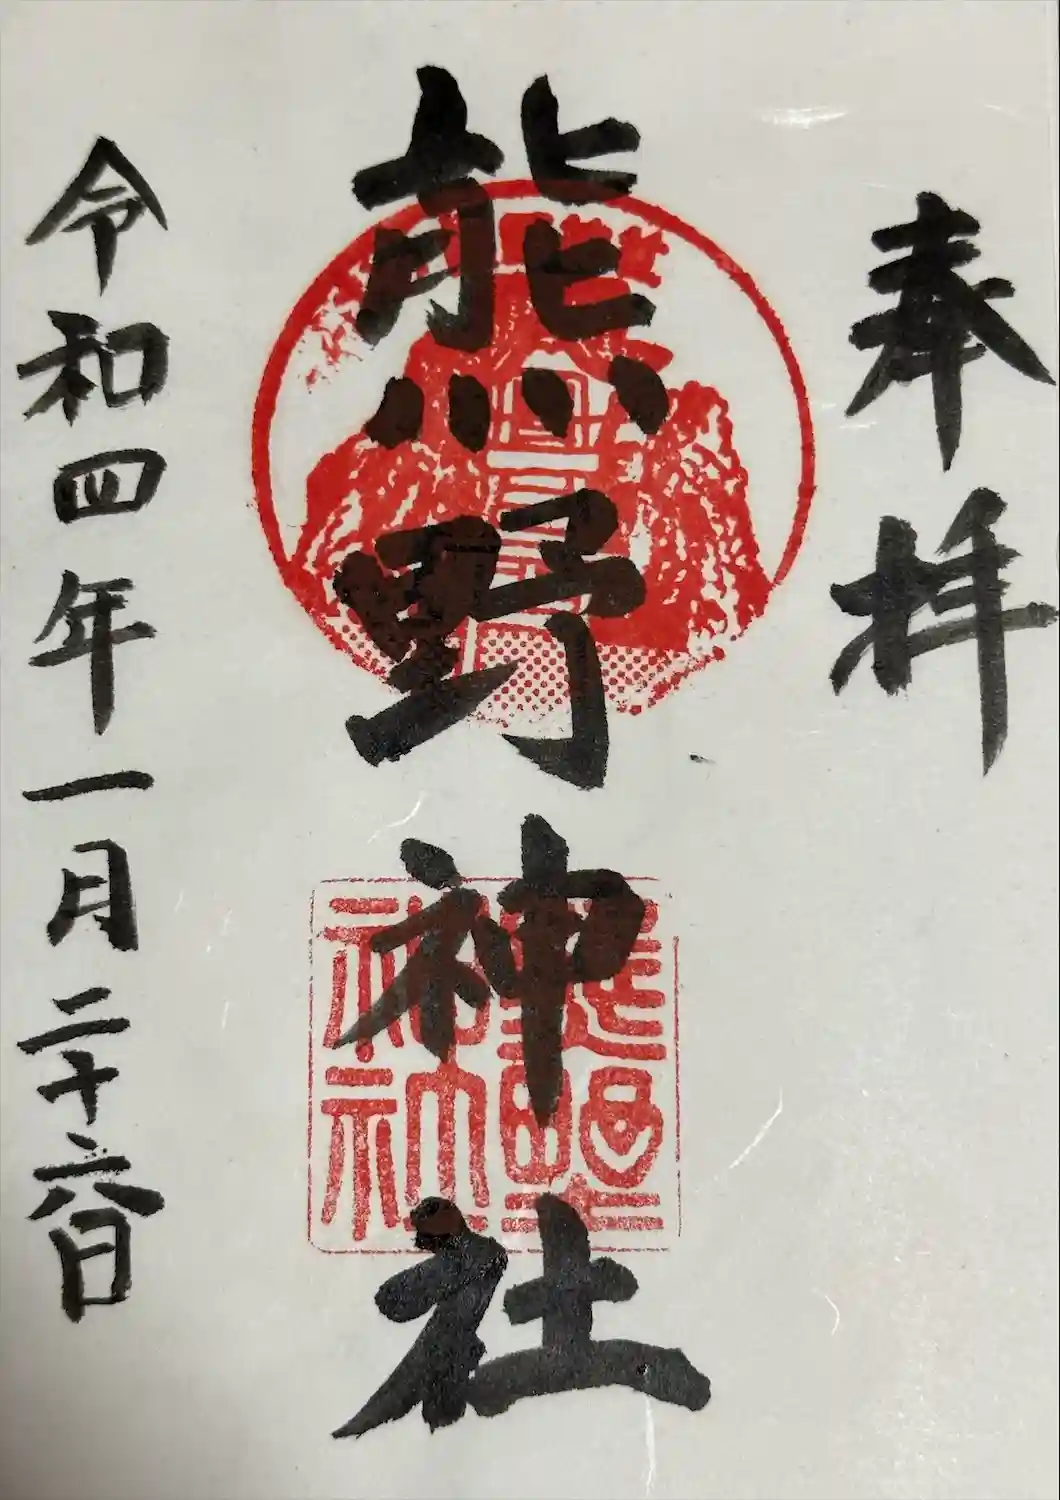 奉拝
熊野神社
令和四年一月二十六日